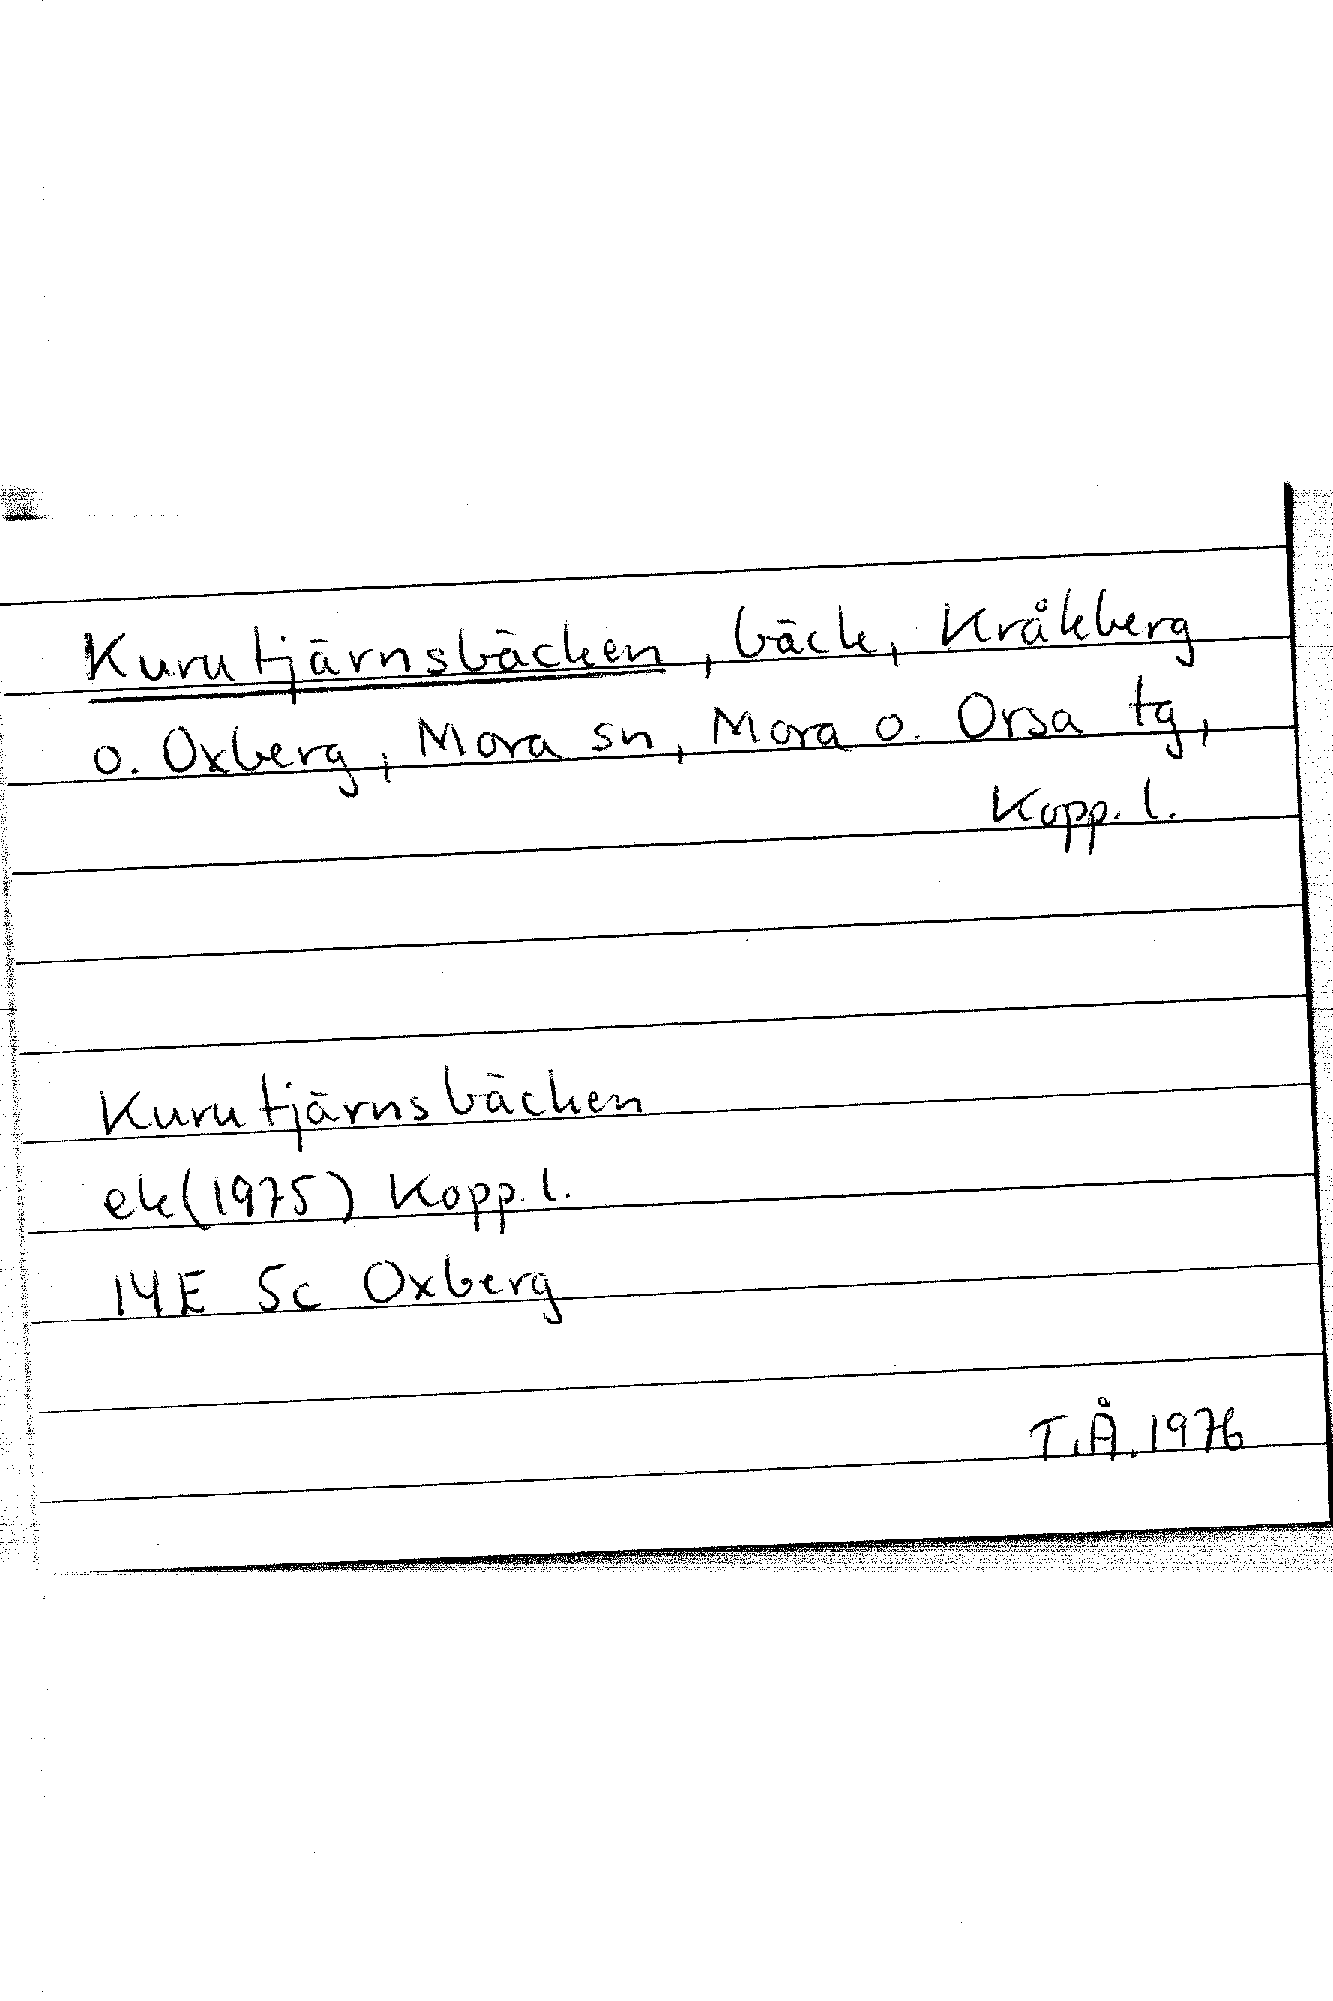 Kurutjärnsbäcken, bäck, Kråkberg
o. Oxberg, Mora sn, Mora o. Orsa tg,
Kopp. l.
Kurutjärnsbäcken
ek(1975) Kopp. l.
14E 5c Oxberg
T.Å. 1976